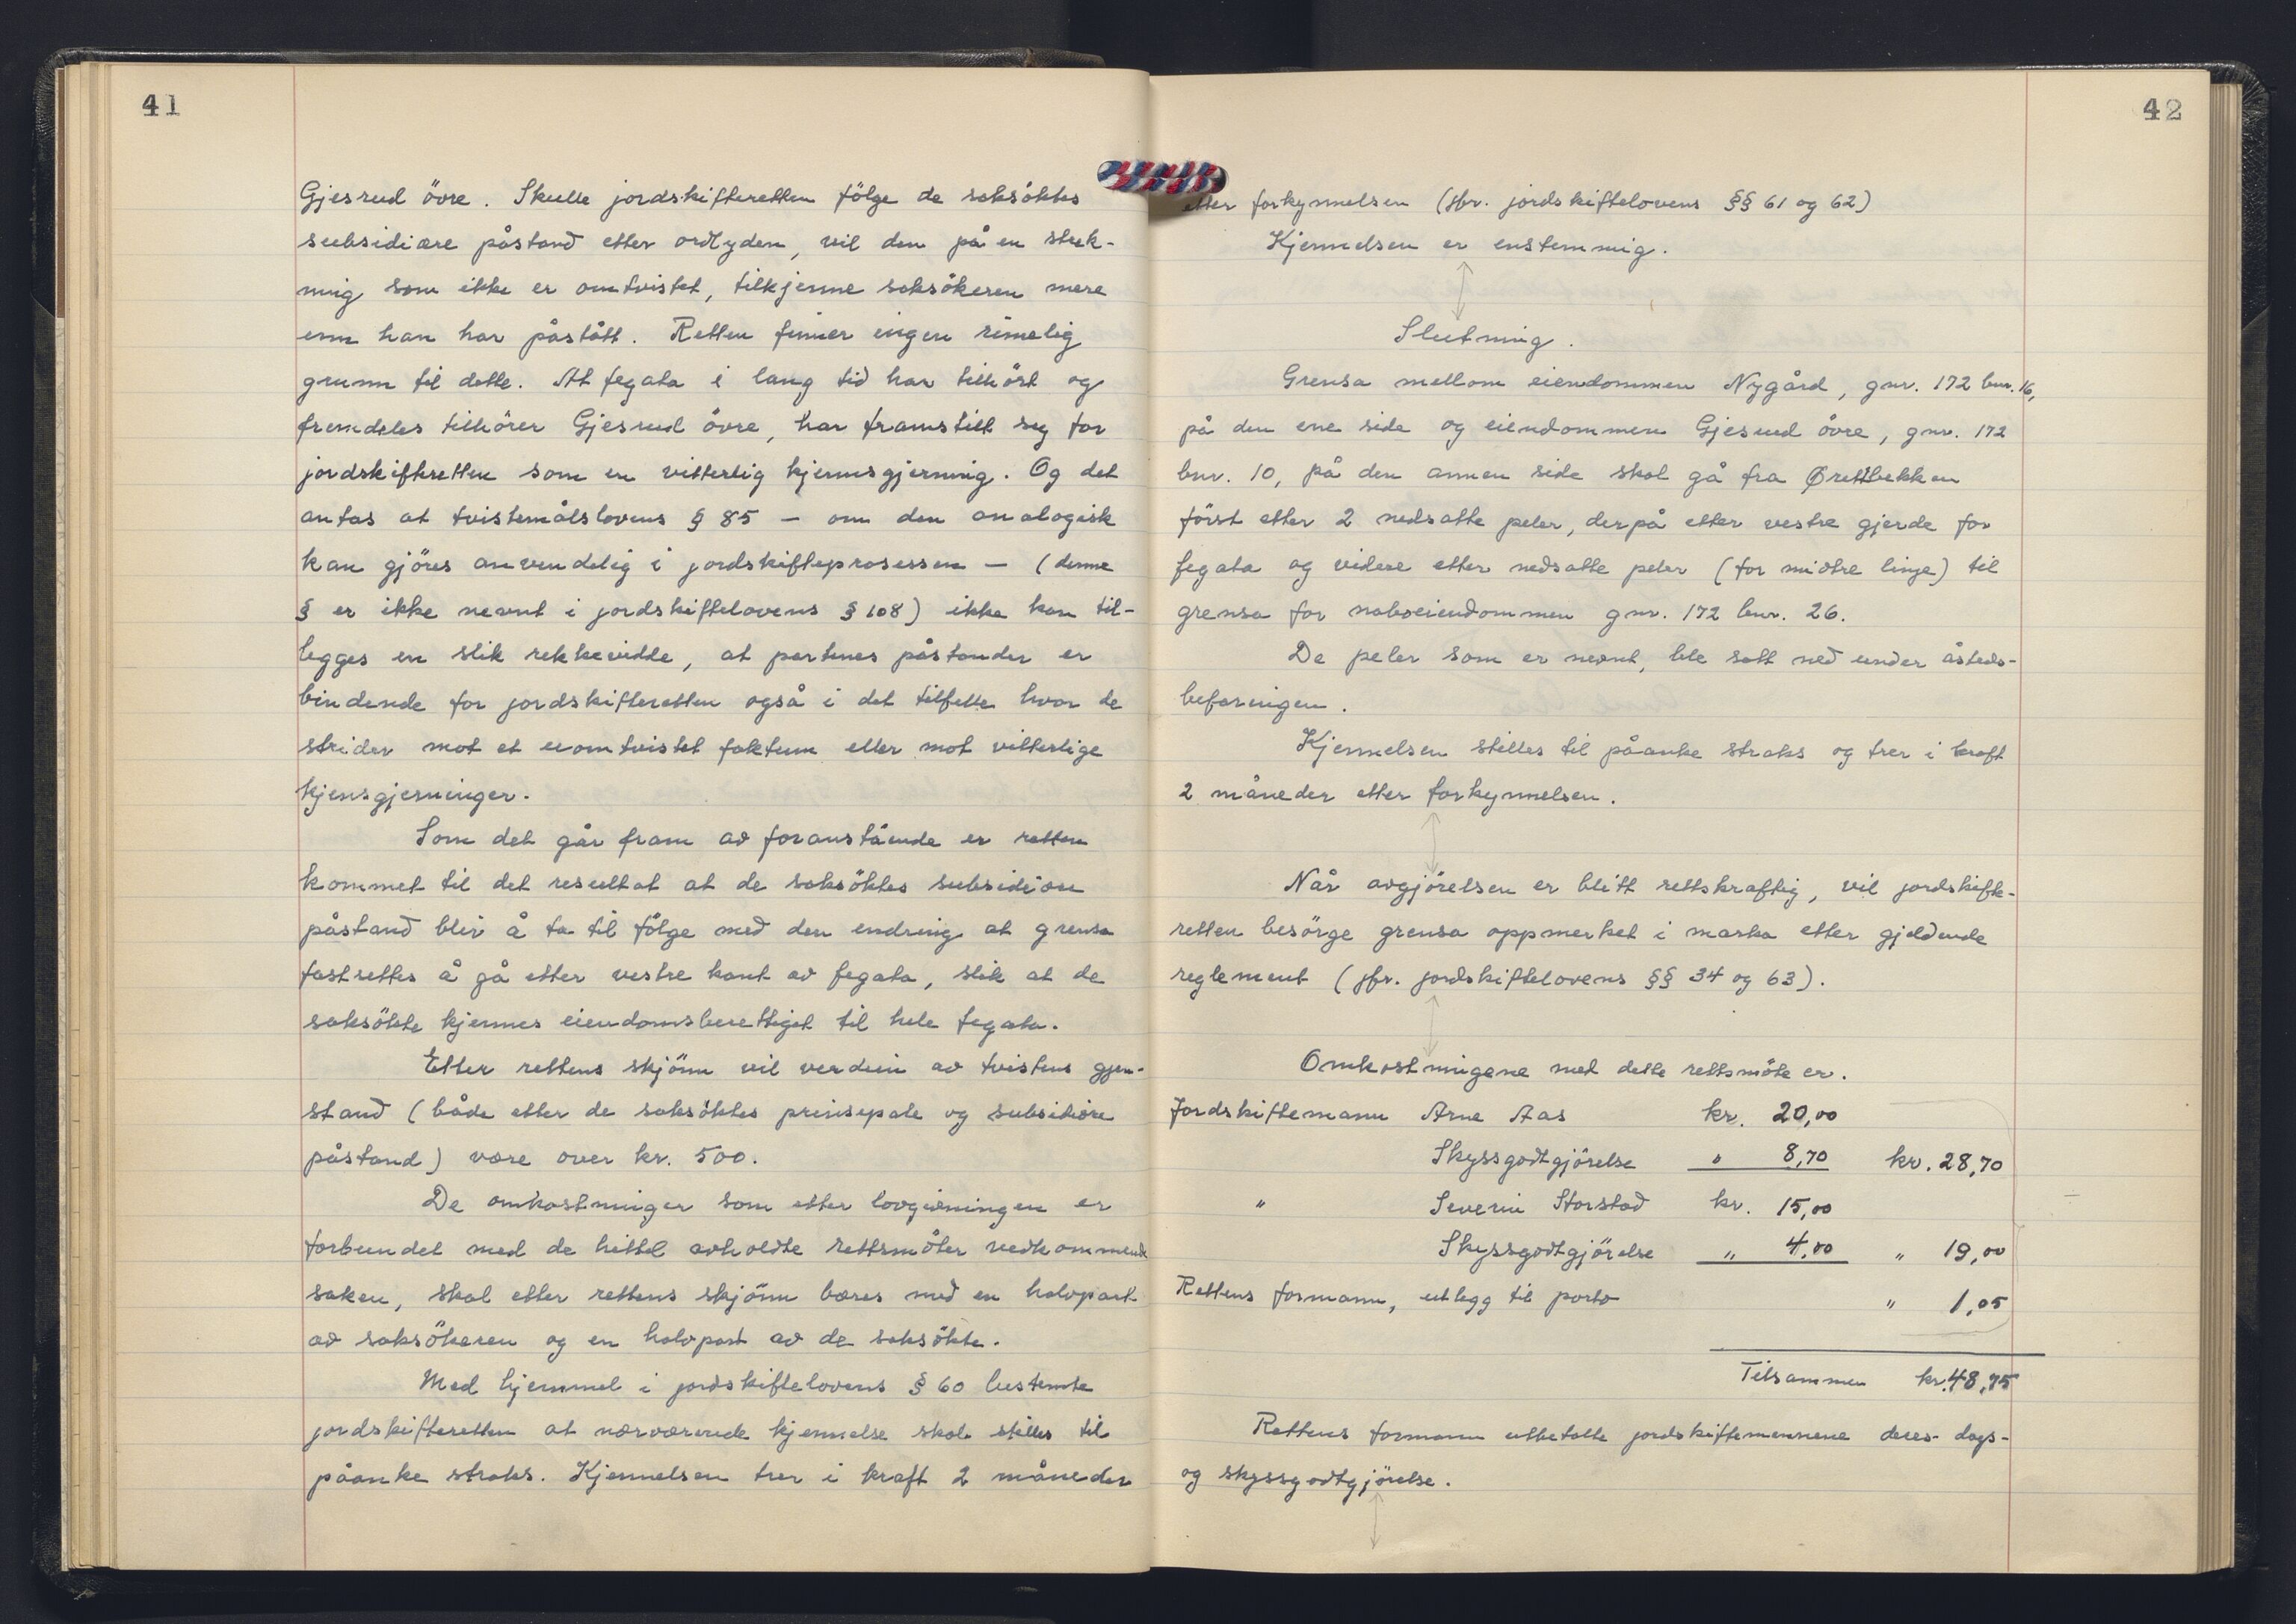 41
Gjesrud övre. Skulle jordskifteretten fölge de saksöktes
subsidiære påstand etter ordlyden, vil den på en strek-
ning som ikke er omtvistet, tilkjenne saksökeren mere
enn han har påstått. Retten finner ingen rimelig
grunn til dette. At fegata i lang tid har tilhört og
fremdeles tilhörer Gjesrud övre, har framstillt seg for
jordskifteretten som en vitterlig kjensgjerning. Og det
antas at tvistemålslovens § 85 – om den analogisk
kan gjöres anvendelig i jordskifteprosessen – (denne
§ er ikke nevnt i jordskiftelovens § 108) ikke kan til-
legges en slik rekkevidde, at partenes påstander er
bindende for jordskifteretten også i det tilfelle hvor de
strider mot et uomtvistet faktum eller mot vitterlige
kjensgjerninger.
Som det går fram av foranstående er retten
kommet til det resultat at de saksöktes subsidiære
påstand blir å ta til fölge med den endring at grensa
fastsettes å gå etter vestre kant av fegata, slik at de
saksökte kjennes eiendomsberettiget til hele fegata.
Etter rettens skjönn vil verdien av tvistens gjen-
stand (både etter de saksöktes prinsipale og subsidiære
påstand) være over kr. 500.
De omkostninger som etter lovgivningen er
forbundet med de hittil avholdte rettsmöter vedkommende
saken, skal etter rettens skjönn bæres med en halvpart
av saksökeren og en halvpart av de saksökte.
Med hjemmel i jordskiftelovens § 60 bestemte
jordskifteretten at nærværende kjennelse skal stilles til
påanke straks. Kjennelsen trer i kraft 2 måneder
42
etter forkynnelsen (jfr. jordskiftelovens §§ 61 og 62)
Kjennelsen er enstemmig.
Slutning.
Grensa mellom eiendommen Nygård, gnr. 172 bnr. 16,
på den ene side og eiendommen Gjesrud övre, gnr. 172
bnr. 10, på den annen side skal gå fra Ørettbekken
först etter 2 nedsatte peler, derpå etter vestre gjerde for
fegata og videre etter nedsatte peler (for midtre linje) til
grensa for naboeiendommen gnr. 172 bnr. 26.
De peler som er nevnt, ble satt ned under åsteds-
befaringen.
Kjennelsen stilles til påanke straks og trer i kraft
2 måneder etter forkynnelsen.
Når avgjörelsen er blitt rettskraftig, vil jordskifte-
retten besörge grensa oppmerket i marka etter gjeldende
reglement (jfr. jordskiftelovens §§ 34 og 63).
Omkostningene med dette rettsmöte er.
Jordskiftemann Arne Aas kr. 20,00
Skyssgodtgjörelse " 8,70 kr. 28,70
" Severin Storstad kr. 15,00
Skyssgodtgjörelse " 4,00 " 19,00
Rettens formann, utlegg til porto " 1,05
Tilsammen kr. 48,75
Rettens formann utbetalte jordskiftemennene deres dags-
og skyssgodtgjörelse.